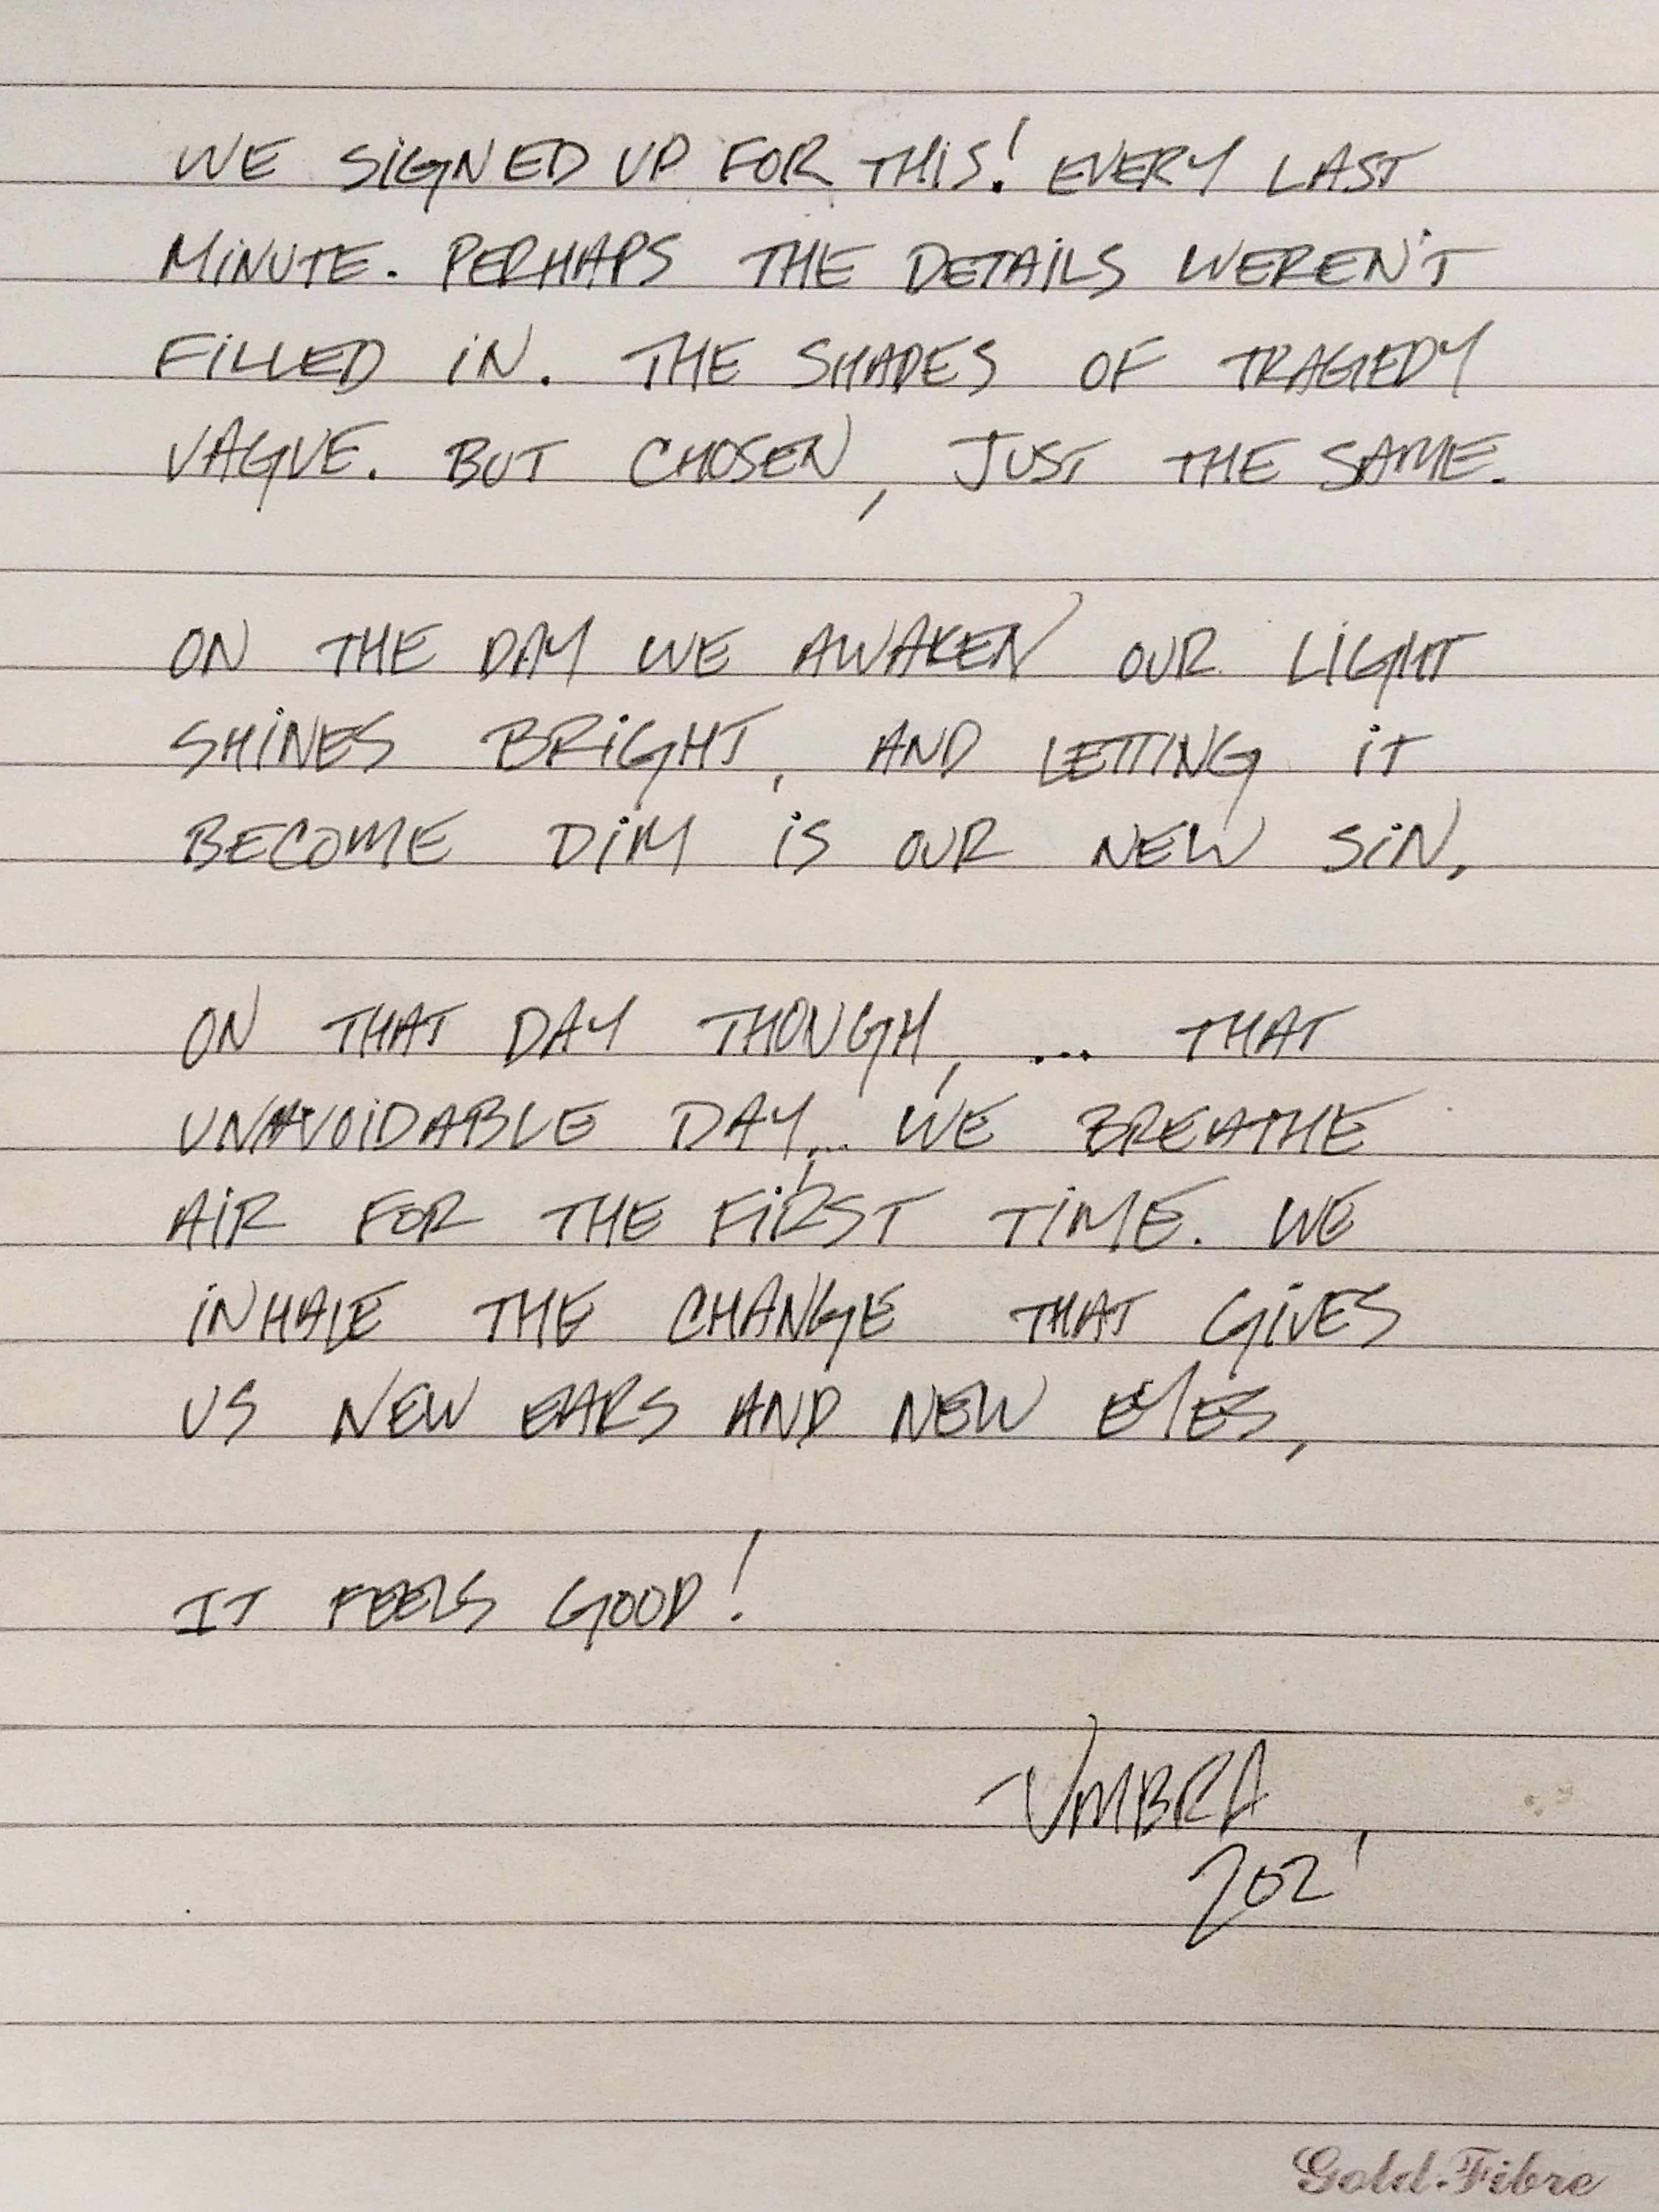 WE SIGNED UP FOR THIS! EVERY LAST
MINUTE. PERHAPS THE DETAILS WEREN'T
FILLED IN. THE SHADES OF TRAGEDY
VAGUE. BUT CHOSEN, JUST THE SAME.
ON THE DAY WE AWAKEN OUR LIGHT
SHINES BRIGHT, AND LETTING IT
BECOME DIM IS OUR NEW SIN,
ON THAT DAY THOUGH, ... THAT
UNAVOIDABLE DAY... WE BREATHE
AIR FOR THE FIRST TIME. WE
INHALE THE CHANGE THAT GIVES
US NEW EARS AND NEW EYES,
IT FEELS GOOD!
-UMBRA
202'
Gold-Fibre